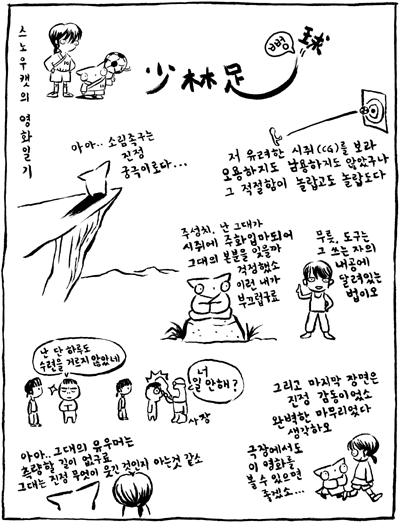 스노우캣의 영화일기
少林足球
뻥
아아.. 소림족구는
진정
궁극이로다...
저 유려한 시취(CG)를 보라
오용하지도 남용하지도 않았구나
그 적절함이 놀랍고도 놀랍도다
주성치, 난 그대가
시취에 주화입마되어
그대의 본분을 잊을까
걱정했소
이런 내가
부끄럽구료
무릇, 도구는
그 쓰는 자의
내공에
달려있는
법이오
난 단 하루도
수련을 거르지 않았네
너
일 안해?
사장
아아.. 그대의 유우머는
측량할 길이 없구료
그대는 진정 무엇이 웃긴 것인지 아는것 같소
그리고 마지막 장면은
진정 감동이었소
완벽한 마무리였다
생각하오
극장에서도
이 영화를
볼 수 있으면
좋겠소...